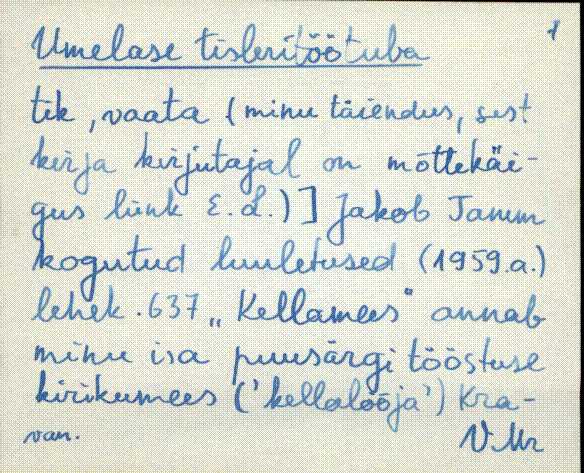 1
Umelase tisleritöötuba
tik, vaata (minu täiendus, sest
kirja kirjutajal on mõttekäi-
gus lünk E.L.)] Jakob Tamm
kogutud luuletused (1959.a.)
lehek. 637 „Kellamees" annab
minu isa puusärgi tööstuse
kirikumees ('kellalööja') Kra-
van. VMr